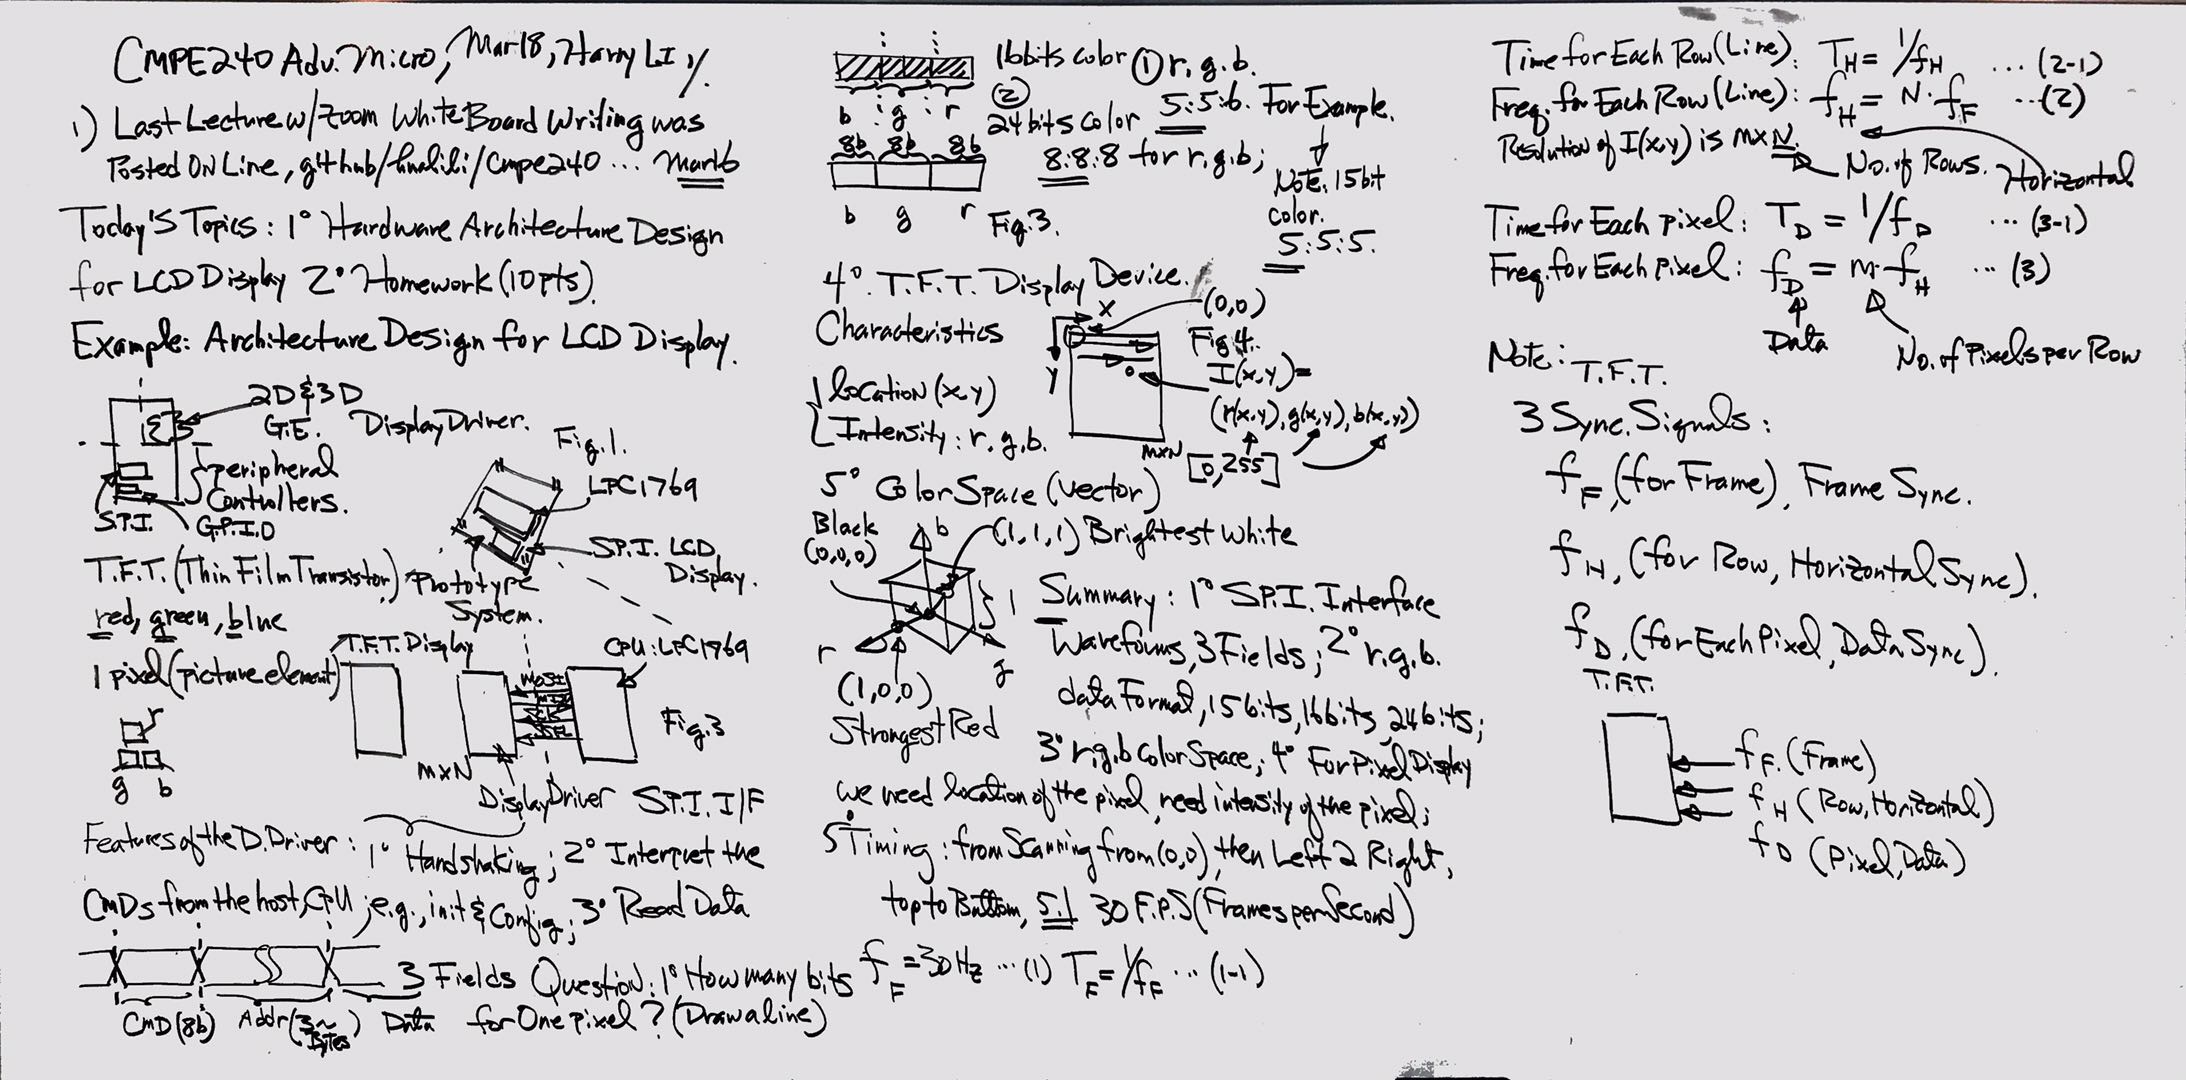 CMPE240 Adv. Micro, Mar18, Harry LI
1) Last Lecture w/ Zoom White Board Writing was
Posted On Line, github/hualili/Cmpe240 ... Mar16
Today's Topics: 1° Hardware Architecture Design
for LCD Display 2° Homework (10pts).
Example: Architecture Design for LCD Display.
2D & 3D
G.E. Display Driver.
Peripheral
Controllers.
S.P.I.
G.P.I.O
Fig.1.
LPC1769
S.P.I. LCD,
Display.
Prototype
System.
T.F.T. (Thin Film Transistor)
red, green, blue
1 pixel (picture element)
r
g b
T.F.T. Display
CPU: LPC1769
MOSI
SCK
Fig.3
MXN
Display Driver S.P.I. I/F
Features of the D.Driver: 1° Handshaking; 2° Interpret the
CMDs from the host, CPU; e.g., init & Config; 3° Read Data
3 Fields Question: 1° How many bits
CMD (8b) Addr (3~ Bytes) Data for One pixel? (Draw a line)
16bits color ① r. g. b.
② 5:5:6. For Example.
b g r
24bits color
8b 8b 8b
8:8:8 for r.g.b;
Note: 15bit
color.
5:5:5.
b g r Fig.3.
4°. T.F.T. Display Device.
(0,0)
X
Characteristics
Fig 4.
Y
I(x,y)=
location (x,y)
(r(x,y), g(x,y), b(x,y))
Intensity: r. g. b.
MXN [0,255]
5° Color Space (Vector)
Black
(0,0,0)
b
(1,1,1) Brightest White
1
r
g
(1,0,0)
Strongest Red
Summary: 1° S.P.I. Interface
Waveforms, 3 Fields; 2° r.g.b.
data Format, 15bits, 16bits, 24bits;
3° r.g.b Color Space; 4° For Pixel Display
we need location of the pixel, need intensity of the pixel;
5° Timing: from Scanning from (0,0), then Left 2 Right,
top to Bottom, 5.1 30 F.P.S (Frames per Second)
f_F = 30Hz ... (1) T_F = 1/f_F ... (1-1)
Time for Each Row (Line): T_H = 1/f_H ... (2-1)
Freq. for Each Row (Line): f_H = N·f_F ... (2)
Resolution of I(x,y) is MXN.
No. of Rows. Horizontal
Time for Each pixel: T_D = 1/f_D ... (3-1)
Freq. for Each Pixel: f_D = M·f_H ... (3)
Data
No. of Pixels per Row
Note: T.F.T.
3 Sync. Signals:
f_F, (for Frame), Frame Sync.
f_H, (for Row, Horizontal Sync).
f_D, (for Each Pixel, Data Sync).
T.F.T.
f_F. (Frame)
f_H (Row, Horizontal)
f_D (Pixel, Data)